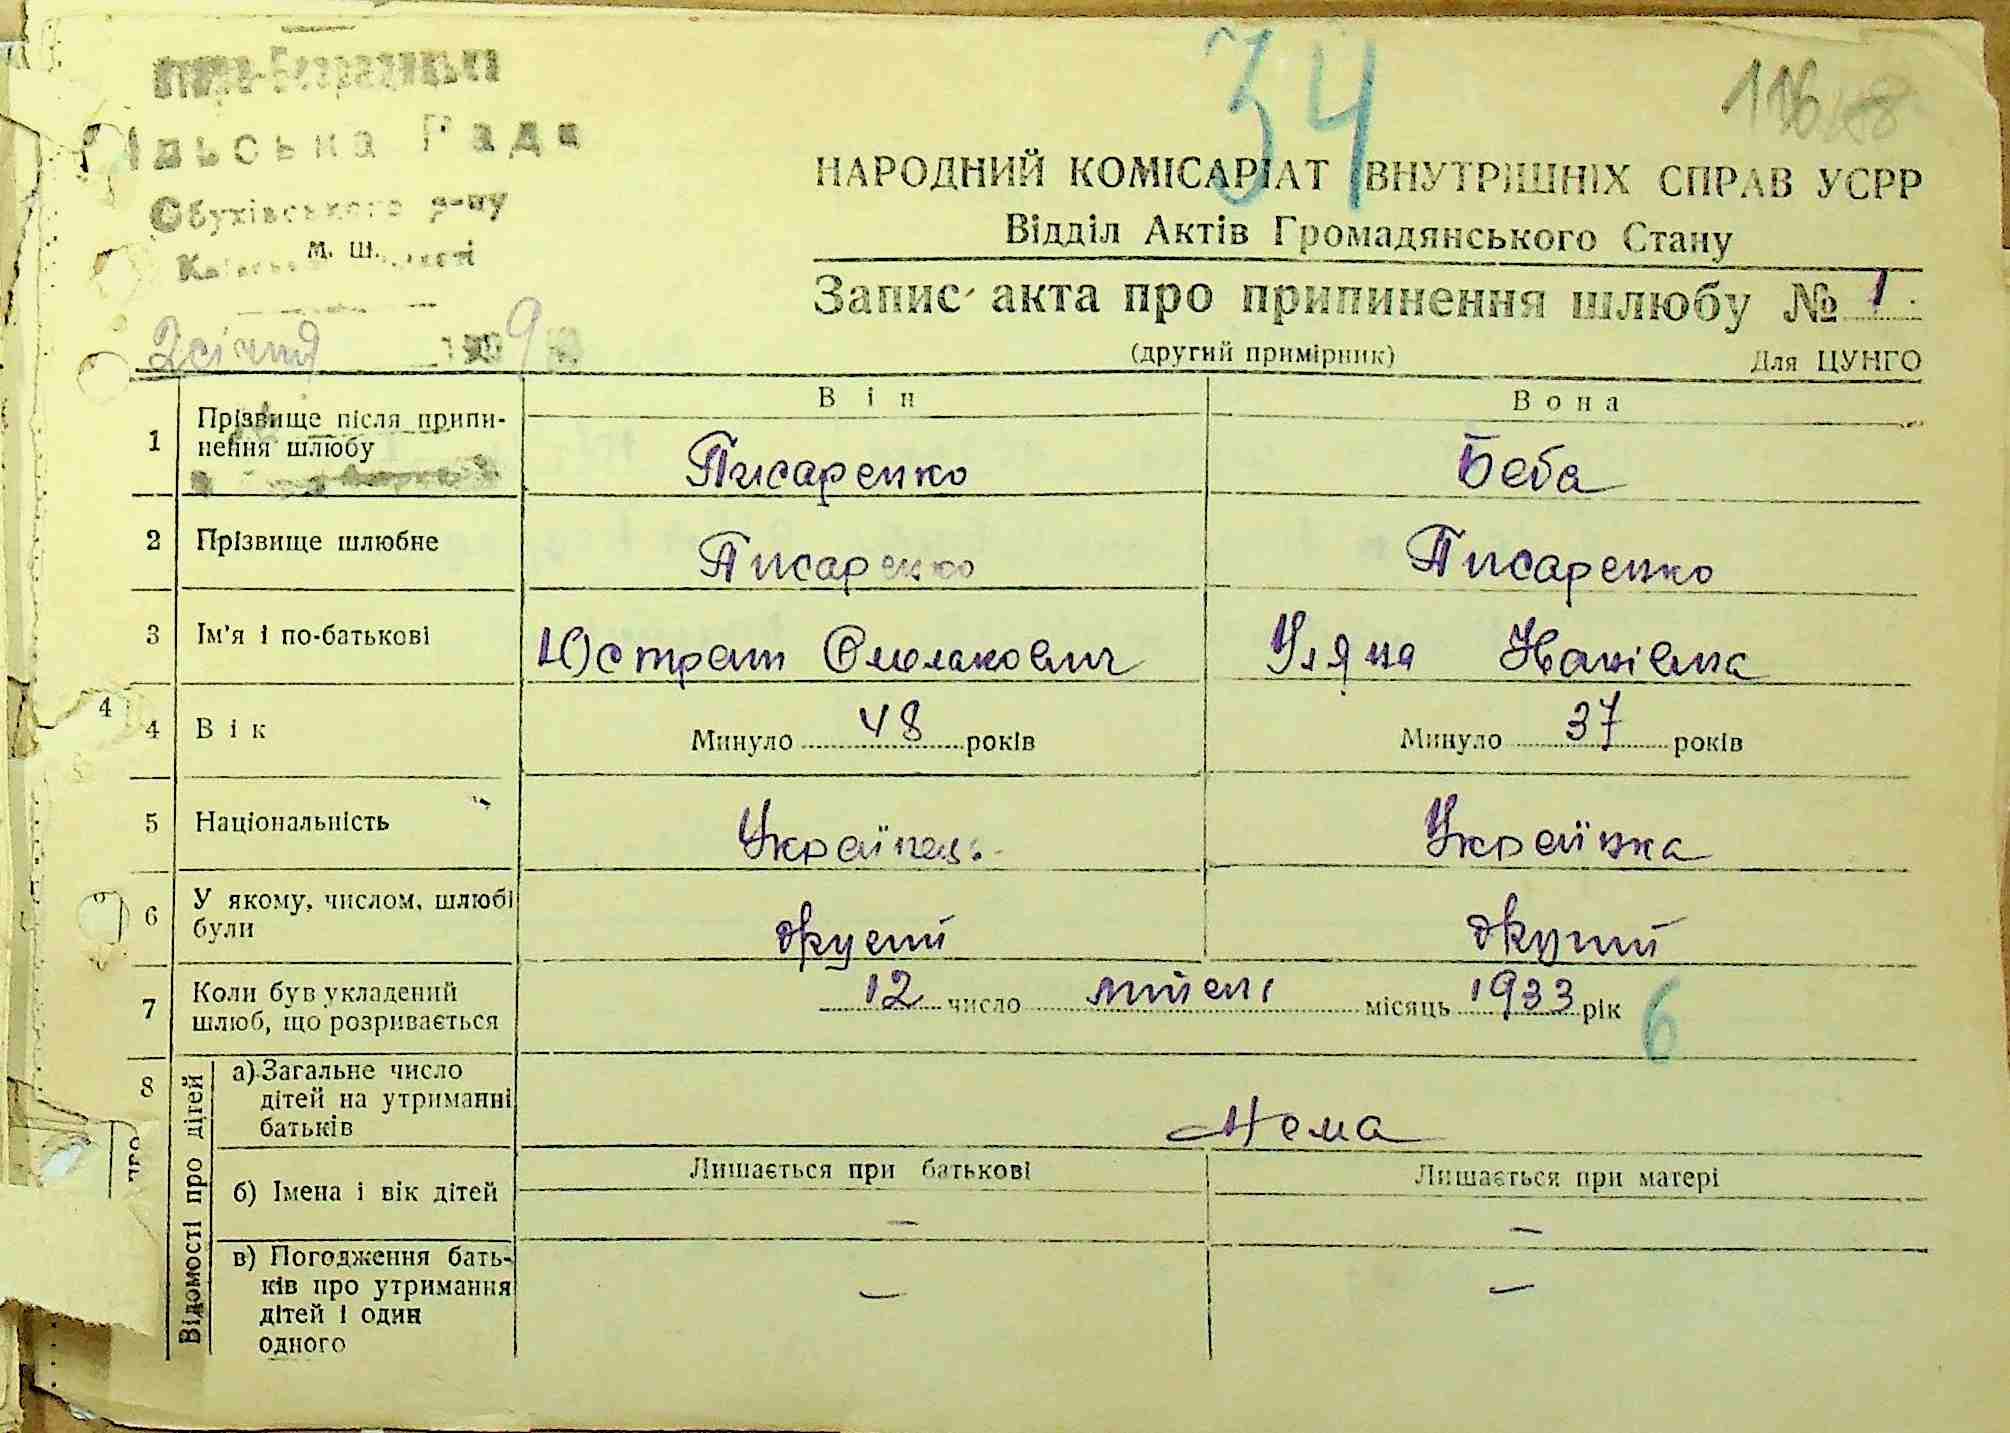 34
116
Сільська Рада
Обухівського р-ну
М. Ш.
НАРОДНИЙ КОМІСАРІАТ ВНУТРІШНІХ СПРАВ УСРР
Відділ Актів Громадянського Стану
Запис акта про припинення шлюбу № 1
2 січня 9
(другий примірник) Для ЦУНГО
Він Вона
1 Прізвище після припи-
нення шлюбу
Писаренко Беба
2 Прізвище шлюбне Писаренко Писаренко
3 Ім'я і по-батькові Юстрат Уляна
4
4 Вік Минуло 48 років Минуло 37 років
5 Національність Українец Українка
6 У якому, числом, шлюбі
були
другий другий
7 Коли був укладений
шлюб, що розривається
12 число місяць 1933 рік 6
8 Відомості про дітей
а) Загальне число
дітей на утриманні
батьків
Нема
Лишається при батькові Лишається при матері
б) Імена і вік дітей — —
в) Погодження бать-
ків про утримання
дітей і один
одного
— —